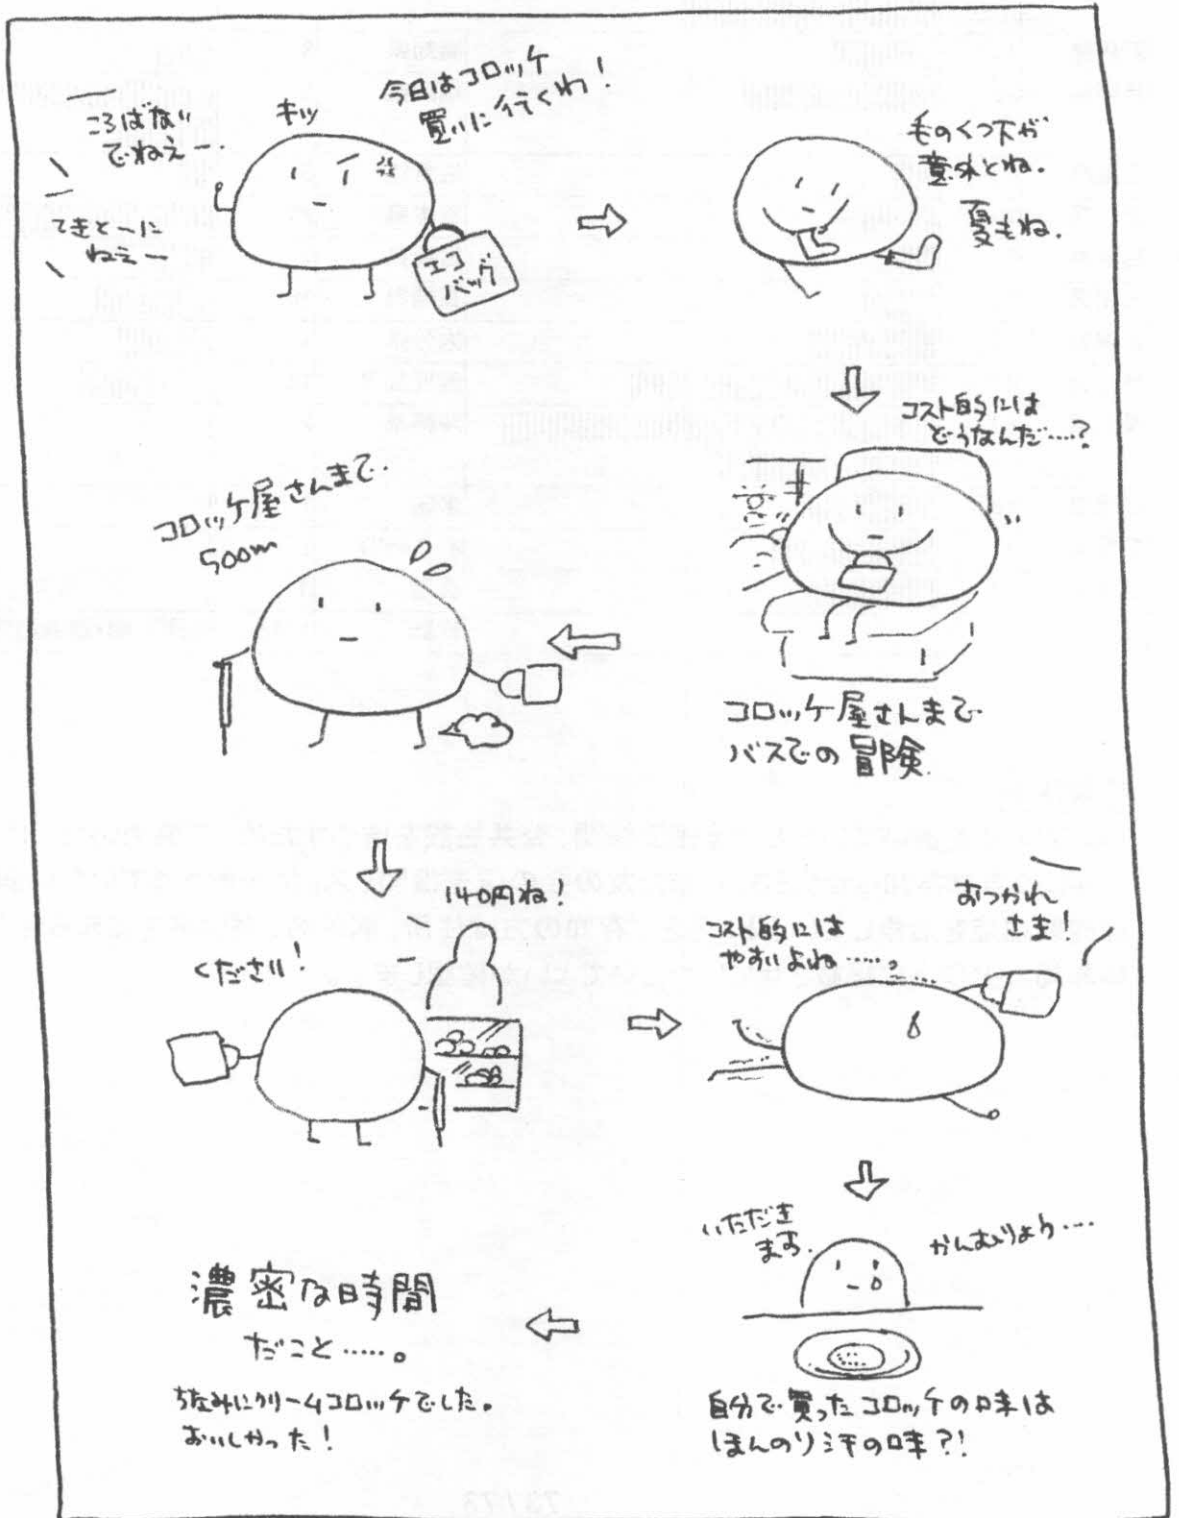 ころばない
でねえー.
てきとーに
ねえー
キッ
今日はコロッケ
買いに行くわ！
エコ
バッグ
毛のくつ下が
意外とね.
夏もね.
コスト的には
どうなんだ…？
コロッケ屋さんまで
バスでの冒険.
コロッケ屋さんまで.
500m
ください！
140円ね！
おつかれ
さま！
コスト的には
やすいよね……。
いただき
ます.
かんむりょう…
自分で買ったコロッケの味は
ほんのり汗の味?!
濃密な時間
だこと……。
ちなみにクリームコロッケでした。
おいしかった！
73 / 78